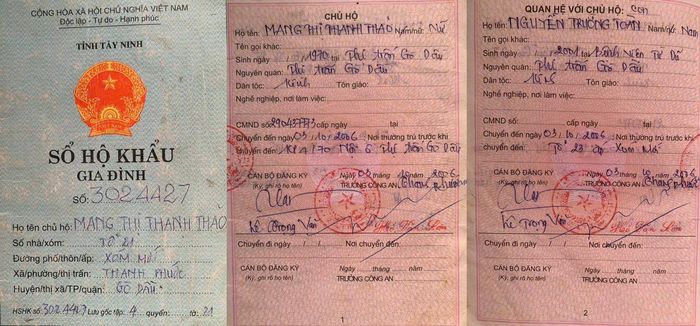 CỘNG HÒA XÃ HỘI CHỦ NGHĨA VIỆT NAM
Độc lập - Tự do - Hạnh phúc
TỈNH TÂY NINH
SỔ HỘ KHẨU
GIA ĐÌNH
SỐ: 3024427
Họ tên chủ hộ: MANG THỊ THANH THẢO
Số nhà/xóm: TỔ 21
Đường phố/thôn/ấp: XÓM MỚI
Xã/phường/thị trấn: THANH PHƯỚC
Huyện/thị xã/TP/quận: GÒ DẦU
HSHK số: 3024427 Lưu gốc tập: 4 quyển: tờ: 21
CHỦ HỘ
Họ tên: MANG THỊ THANH THẢO Nam/nữ: Nữ
Tên gọi khác:
Sinh ngày 1970 Thị trấn Gò Dầu
Nguyên quán: Thị trấn Gò Dầu
Dân tộc: Kinh Tôn giáo:
Nghề nghiệp, nơi làm việc:
CMND số: 290437773 cấp ngày tại
Chuyển đến ngày 03/10/2006 Nơi thường trú trước khi
chuyển đến: Thị trấn Gò Dầu
CÁN BỘ ĐĂNG KÝ
(Ký, ghi rõ họ tên)
Ngày 03 tháng 10 năm 2006
TRƯỞNG CÔNG AN
Lê Trọng Văn
Chuyển đi ngày / / Nơi chuyển đến:
CÁN BỘ ĐĂNG KÝ
(Ký, ghi rõ họ tên)
Ngày tháng năm
TRƯỞNG CÔNG AN
1
QUAN HỆ VỚI CHỦ HỘ: con
Họ tên: NGUYỄN TRƯỜNG TOÀN Nam/nữ: Nam
Tên gọi khác:
Sinh ngày 2001 Bệnh Viện Từ Dũ
Nguyên quán: Thị trấn Gò Dầu
Dân tộc: Kinh Tôn giáo:
Nghề nghiệp, nơi làm việc:
CMND số: cấp ngày tại
Chuyển đến ngày 03/10/2006 Nơi thường trú trước khi
chuyển đến: Tổ 23 ấp Xóm Mới
CÁN BỘ ĐĂNG KÝ
(Ký, ghi rõ họ tên)
Ngày 03 tháng 10 năm 2006
TRƯỞNG CÔNG AN
Lê Trọng Văn
Chuyển đi ngày / / Nơi chuyển đến:
CÁN BỘ ĐĂNG KÝ
(Ký, ghi rõ họ tên)
Ngày tháng năm
TRƯỞNG CÔNG AN
2